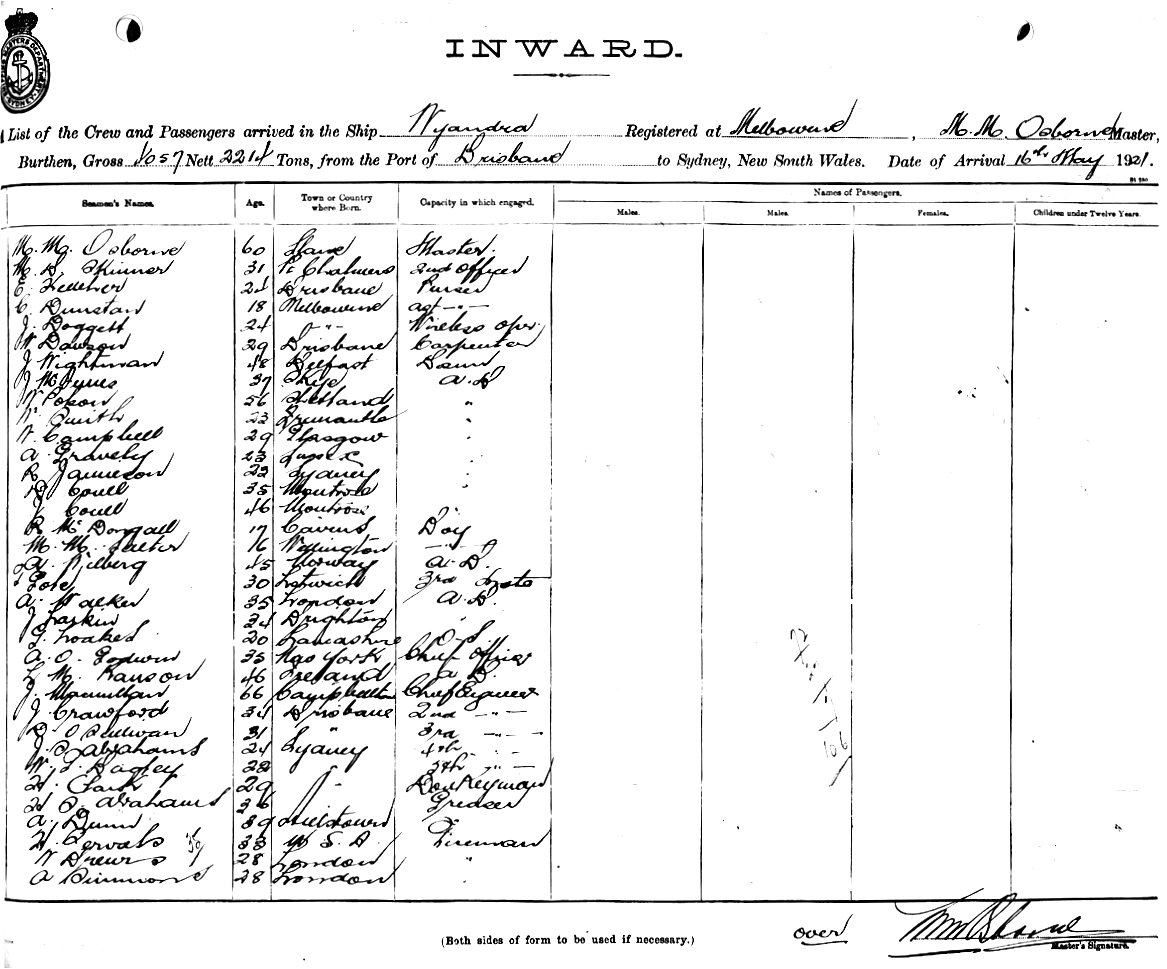 INWARD.
List of the Crew and Passengers arrived in the Ship Wyandra Registered at Melbourne, M. M. Osborne Master,
Burthen, Gross 4057 Nett 2214 Tons, from the Port of Brisbane to Sydney, New South Wales. Date of Arrival 16th May 1921.
Names of Passengers.
Seamen's Names. Age. Town or Country where Born. Capacity in which engaged. Males. Males. Females. Children under Twelve Years.
M. M. Osborne 60 Master.
M. D. Skinner 31 Pt Chalmers 2nd Officer
E. Kelleher 24 Brisbane Purser
C. Dunstan 18 Melbourne asst -"-
J. Doggett 24 -"- Wireless opr.
W Dawson 29 Brisbane Carpenter
J Wightman 48 Belfast
J 37 Skye A.B
56 Shetland "
W. Smith 23 Fremantle "
W. Campbell 29 Glasgow "
A Gravely 23 Sussex "
R Jamieson 23 Sydney "
D Coull 35 Montrose
J Coull 46 Montrose "
R McDougall 17 Cairns Boy
M. M. Salter 16 Wellington -"-
A. 45 Norway A.B.
30 3rd
A. Walker 35 London A.B.
J Larkin 34 Brighton
G. Loakes 20 Lancashire O.S.
A. O. Godwin 35 New York Chief Officer
L. M. Ranson 46 Ireland A B.
J. Macmillan 66 Campbelltown Chief Engineer
J. Crawford 34 Brisbane 2nd -"-
D. O'Sullivan 31 " 3rd -"-
J. S. Abrahams 24 Sydney 4th "
W. L. Bagley 28 5th "-
H. Clark 29 " Donkeyman
H. S. Abrahams 36 Greaser
A. Dunn 39 "
H. Gervats 33 U S. A. Fireman
W Drews 28 London
A Simmons 28 London "
(Both sides of form to be used if necessary.) over
Master's Signature.